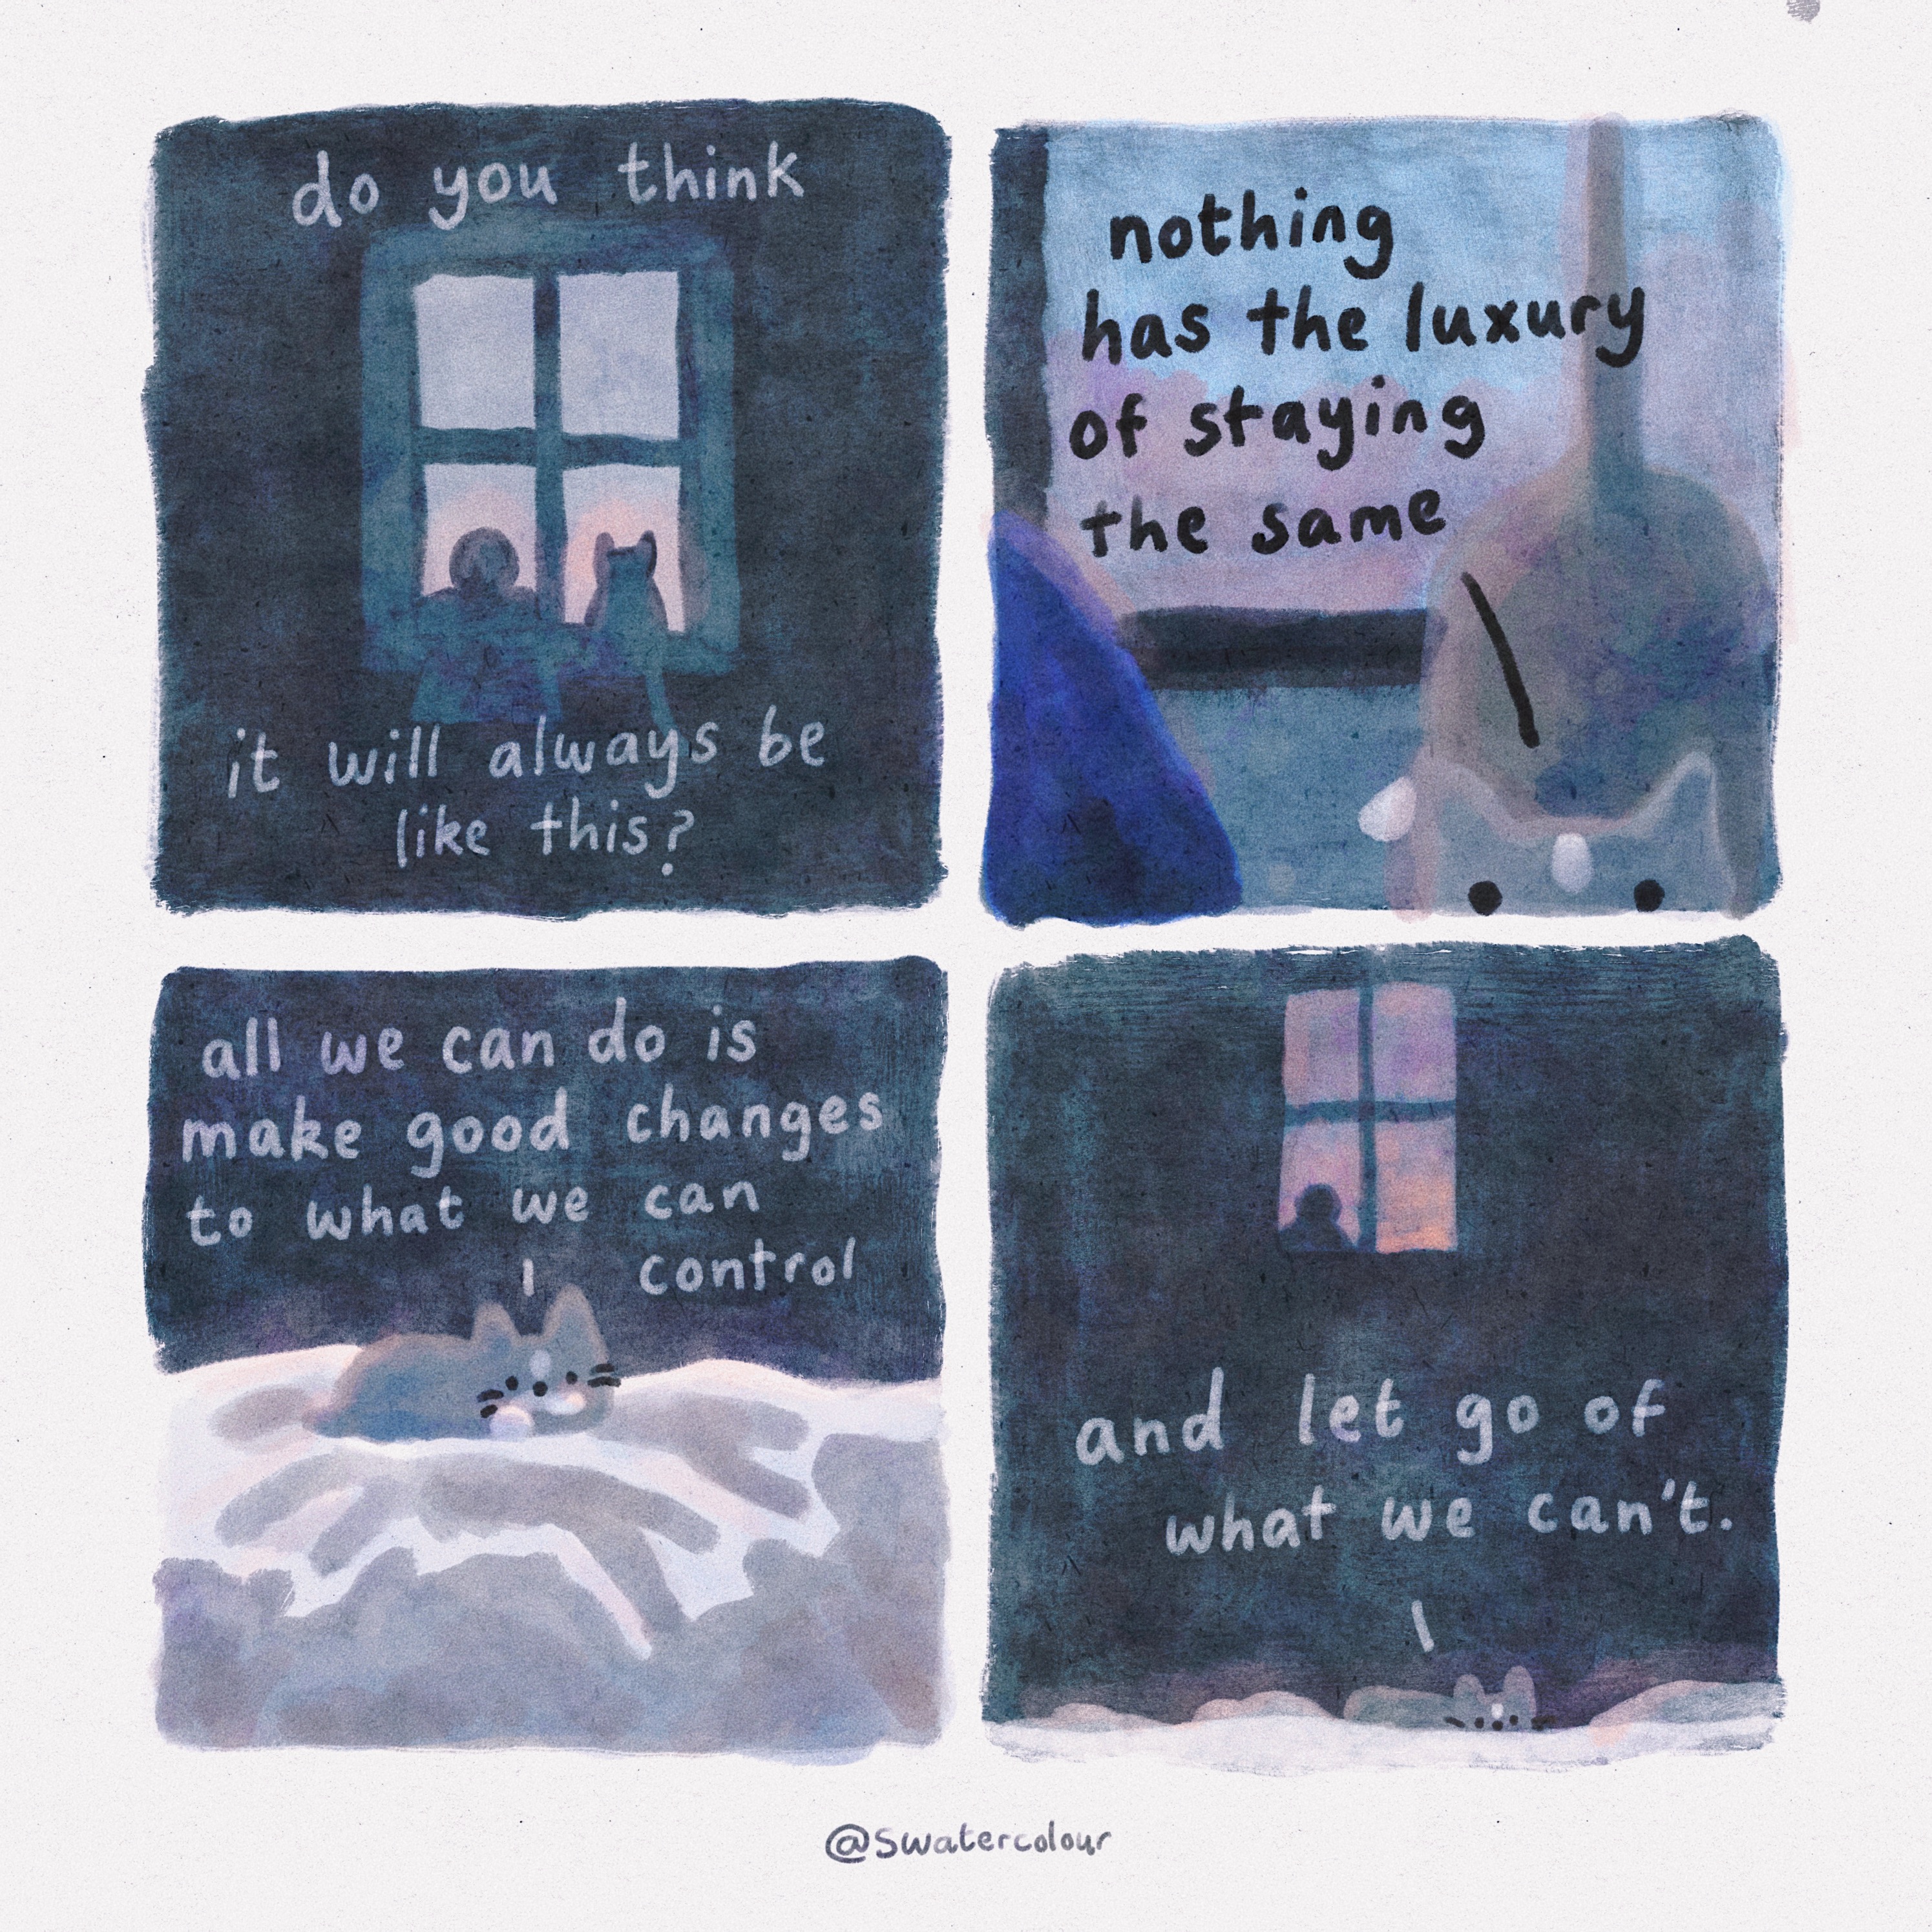 do you think
it will always be
like this?
nothing
has the luxury
of staying
the same
all we can do is
make good changes
to what we can
control
and let go of
what we can't.
@swatercolour